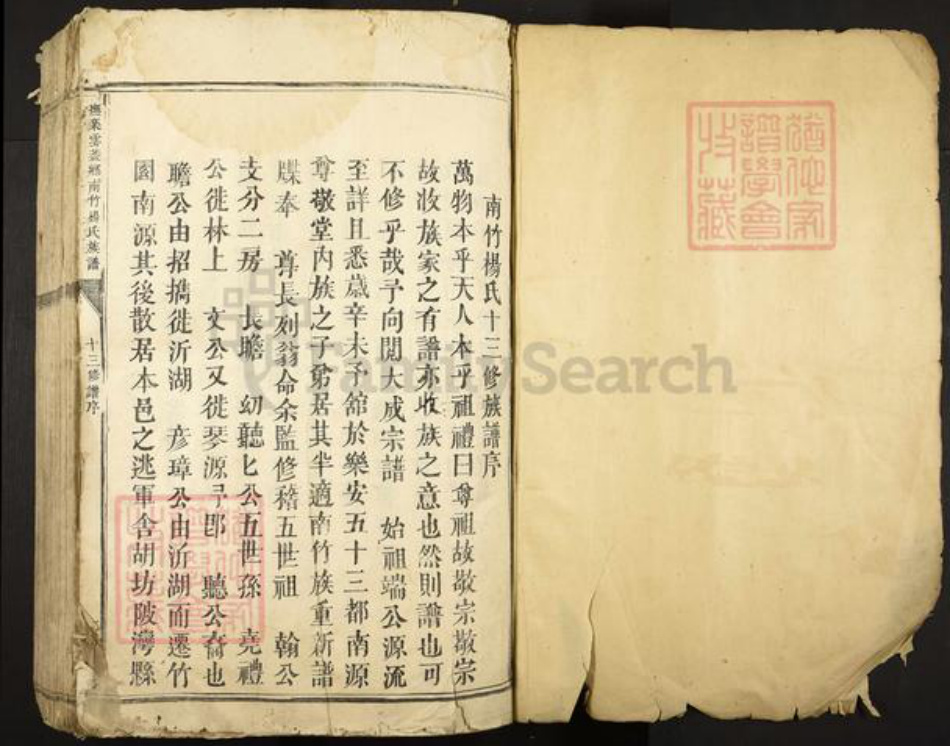 南竹楊氏十三修族譜序
萬物本乎天人本乎祖禮曰尊祖故敬宗敬宗
故收族家之有譜亦收族之意也然則譜也可
不修乎哉予向閱大成宗譜 始祖端公源流
至詳且悉歲辛未予舘於樂安五十三都南源
尊敬堂內族之子弟居其半適南竹族重新譜
牒奉 尊長列翁命余監修稽五世祖 翰公
支分二房 長瞻 幼聽匕公五世孫 堯禮
公徙林上 文公又徙琴源 卽 聽公裔也
瞻公由招擕徙沂湖 彥璋公由沂湖而遷竹
園南源其後散居本邑之逃軍舍胡坊陂灣縣
撫樂雲蓋鄉南竹楊氏族譜
十三修譜序
猶他家
譜學會
收藏
FamilySearch